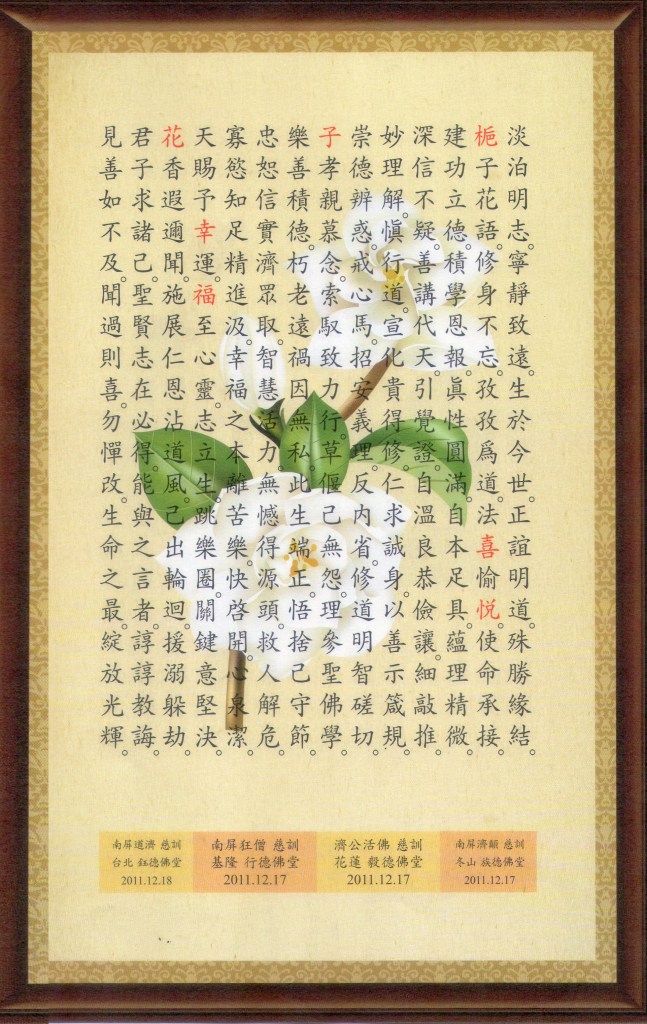 淡泊明志。寧靜致遠。生於今世。正誼明道。殊勝緣結。
梔子花語。修身不忘。孜孜爲道。法喜愉悅。使命承接。
建功立德。積學恩報。眞性圓滿。自本足具。蘊理精微。
深信不疑。善講代天。引覺證自。溫良恭儉。讓細敲推。
妙理解愼。行道宣化。貴得修仁。求誠身以。善示箴規。
崇德辨惑。戒心馬招。安義理反。內省修道。明智磋切。
子孝親慕。念索馭致。力行草偃。己無怨理。參聖佛學。
樂善積德。朽老遠禍。因無私此。生端正悟。捨己守節。
忠恕信實。濟眾取智。慧活力無。憾得源頭。救人解危。
寡慾知足。精進汲幸。福之本離。苦樂快啓。開心泉潔。
天賜予幸。運福至心。靈志立生。跳樂圈關。鍵意堅決。
花香遐邇。聞施展仁。恩沾道風。己出輪迴。援溺躲劫。
君子求諸。己聖賢志。在必得能。與之言者。諄諄教誨。
見善如不。及聞過則。喜勿憚改。生命之最。綻放光輝。
南屏濟顛 慈訓
冬山 族德佛堂
2011.12.17
濟公活佛 慈訓
花蓮 毅德佛堂
2011.12.17
南屏狂僧 慈訓
基隆 行德佛堂
2011.12.17
南屏道濟 慈訓
台北 鈺德佛堂
2011.12.18